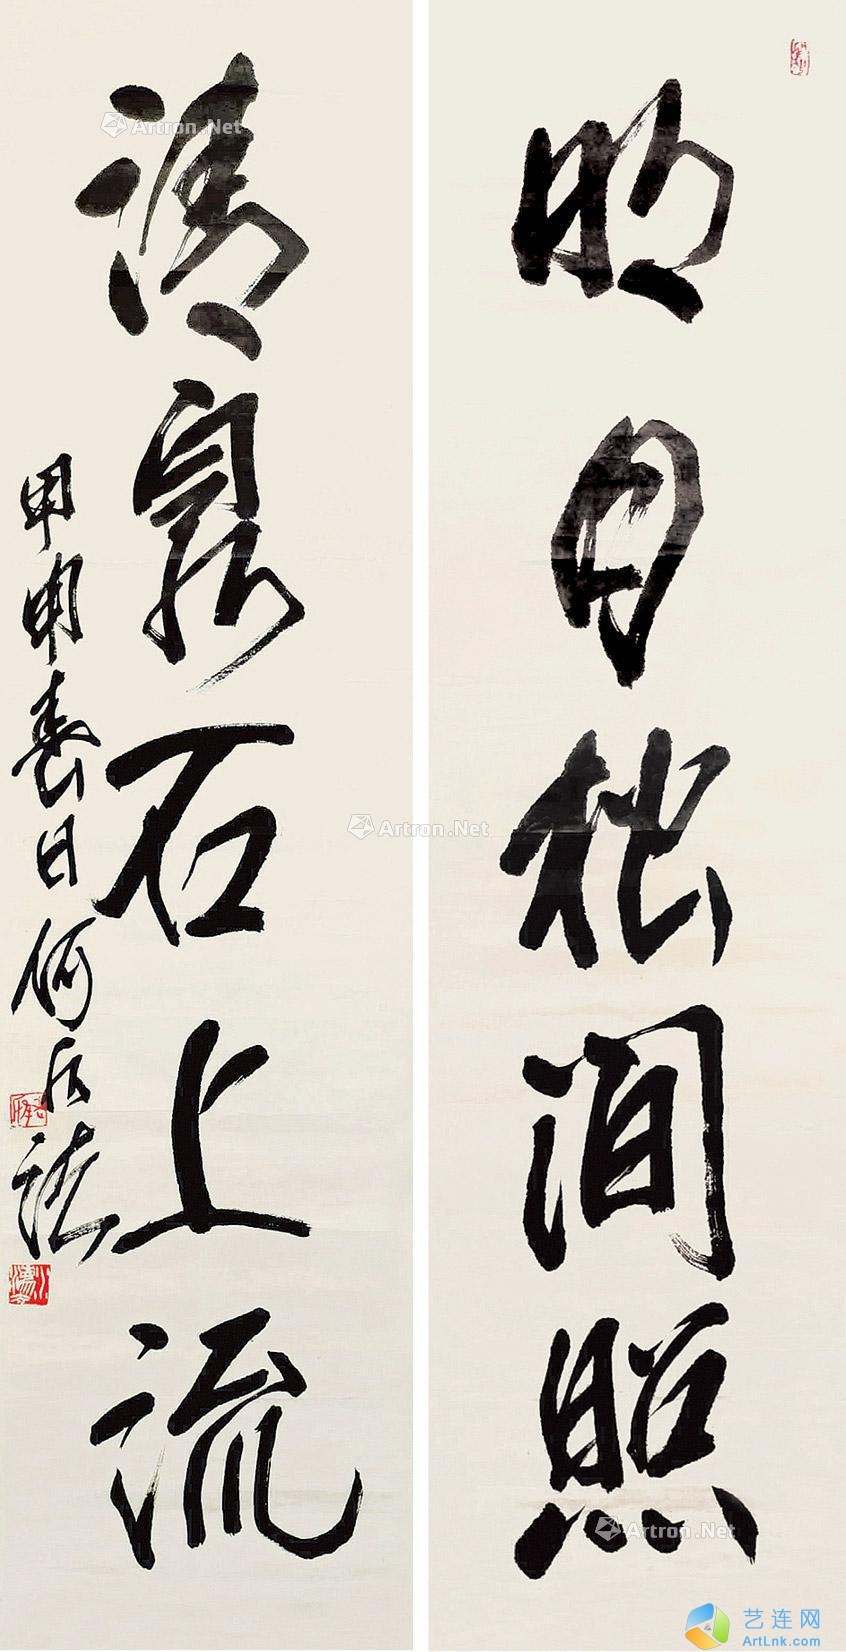 明月松间照
清泉石上流
甲申春日何应辉
Artron.Net
Artron.Net
Artron.Net
艺连网
ArtLnk.com